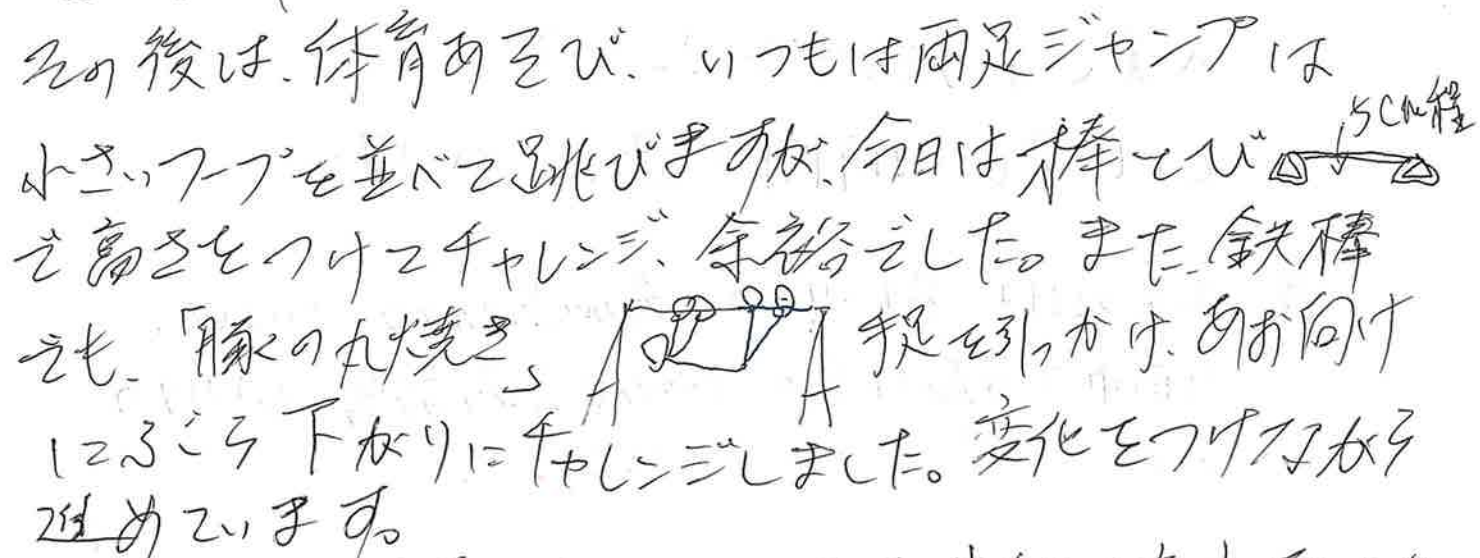 その後は、体育あそび、いつもは両足ジャンプは
小さいフープを並べて跳びますが、今日は棒とび
5cm程
で高さをつけてチャレンジ、余裕でした。また、鉄棒
でも、「豚の丸焼き」手足を引っかけ、あお向け
にぶら下がりにチャレンジしました。変化をつけながら
進めています。